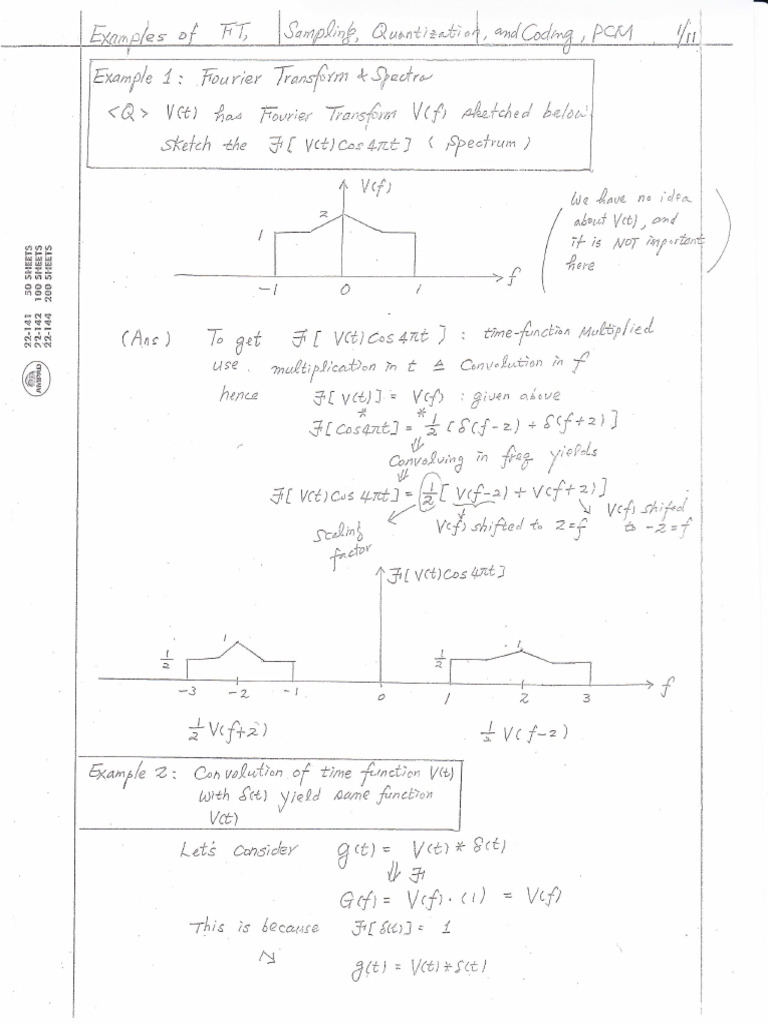 Examples of FT, Sampling, Quantization, and Coding, PCM 1/11
Example 1: Fourier Transform & Spectra
<Q> V(t) has Fourier Transform V(f) sketched below
sketch the ℱ[V(t)Cos4πt] (Spectrum)
V(f)
2
1
-1 0 1 f
We have no idea
about V(t), and
it is NOT important
here
22-141 50 SHEETS
22-142 100 SHEETS
22-144 200 SHEETS
AMPAD
(Ans) To get ℱ[V(t)Cos4πt] : time-function Multiplied
use multiplication in t ≙ Convolution in f
hence ℱ[V(t)] = V(f) : given above
* *
ℱ[Cos4πt] = 1/2 [δ(f-2) + δ(f+2)]
⇓
Convolving in freq yields
⇓
ℱ[V(t)Cos 4πt] = 1/2 [V(f-2) + V(f+2)]
Scaling
factor
V(f) shifted to 2=f
V(f) shifed
to -2=f
ℱ[V(t)Cos4πt]
1/2 1 1/2 1
-3 -2 -1 0 1 2 3 f
1/2 V(f+2) 1/2 V(f-2)
Example 2: Convolution of time function V(t)
with δ(t) yield same function
V(t)
Let's Consider g(t) = V(t) * δ(t)
⇓ ℱ
G(f) = V(f)·(1) = V(f)
This is because ℱ[δ(t)] = 1
g(t) = V(t)*δ(t)